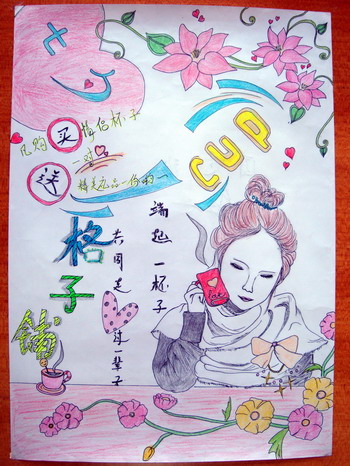 七夕
凡购买情侣杯子
一对
送精美礼品一份
CUP
格子铺
端起一杯子
共同走过一辈子